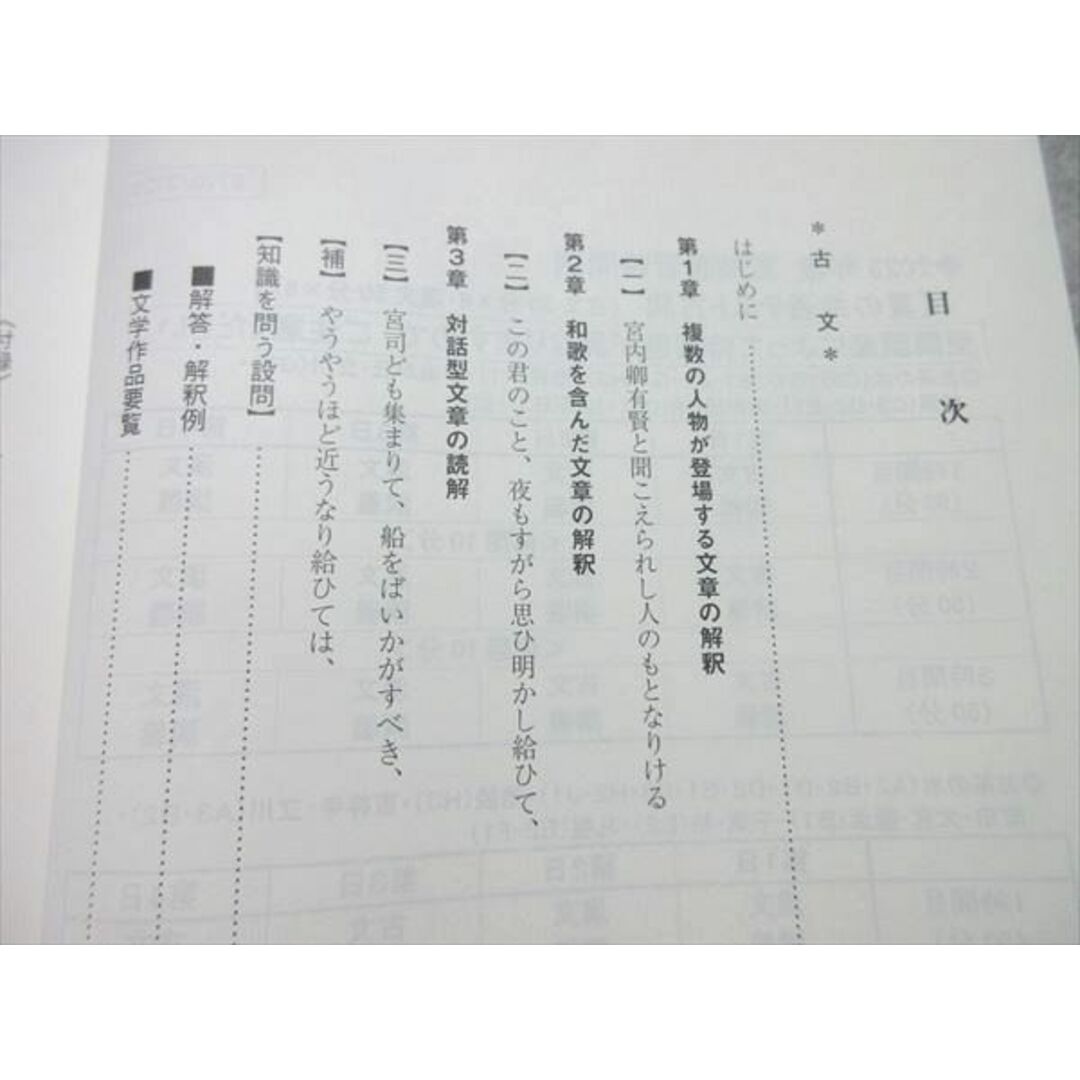 目次
＊古文＊
はじめに
第1章 複数の人物が登場する文章の解釈
【一】 宮内卿有賢と聞こえられし人のもとなりける
第2章 和歌を含んだ文章の解釈
【二】 この君のこと、夜もすがら思ひ明かし給ひて、
第3章 対話型文章の読解
【三】 宮司ども集まりて、船をばいかがすべき、
【補】 やうやうほど近うなり給ひては、
【知識を問う設問】
■解答・解釈例
■文学作品要覧